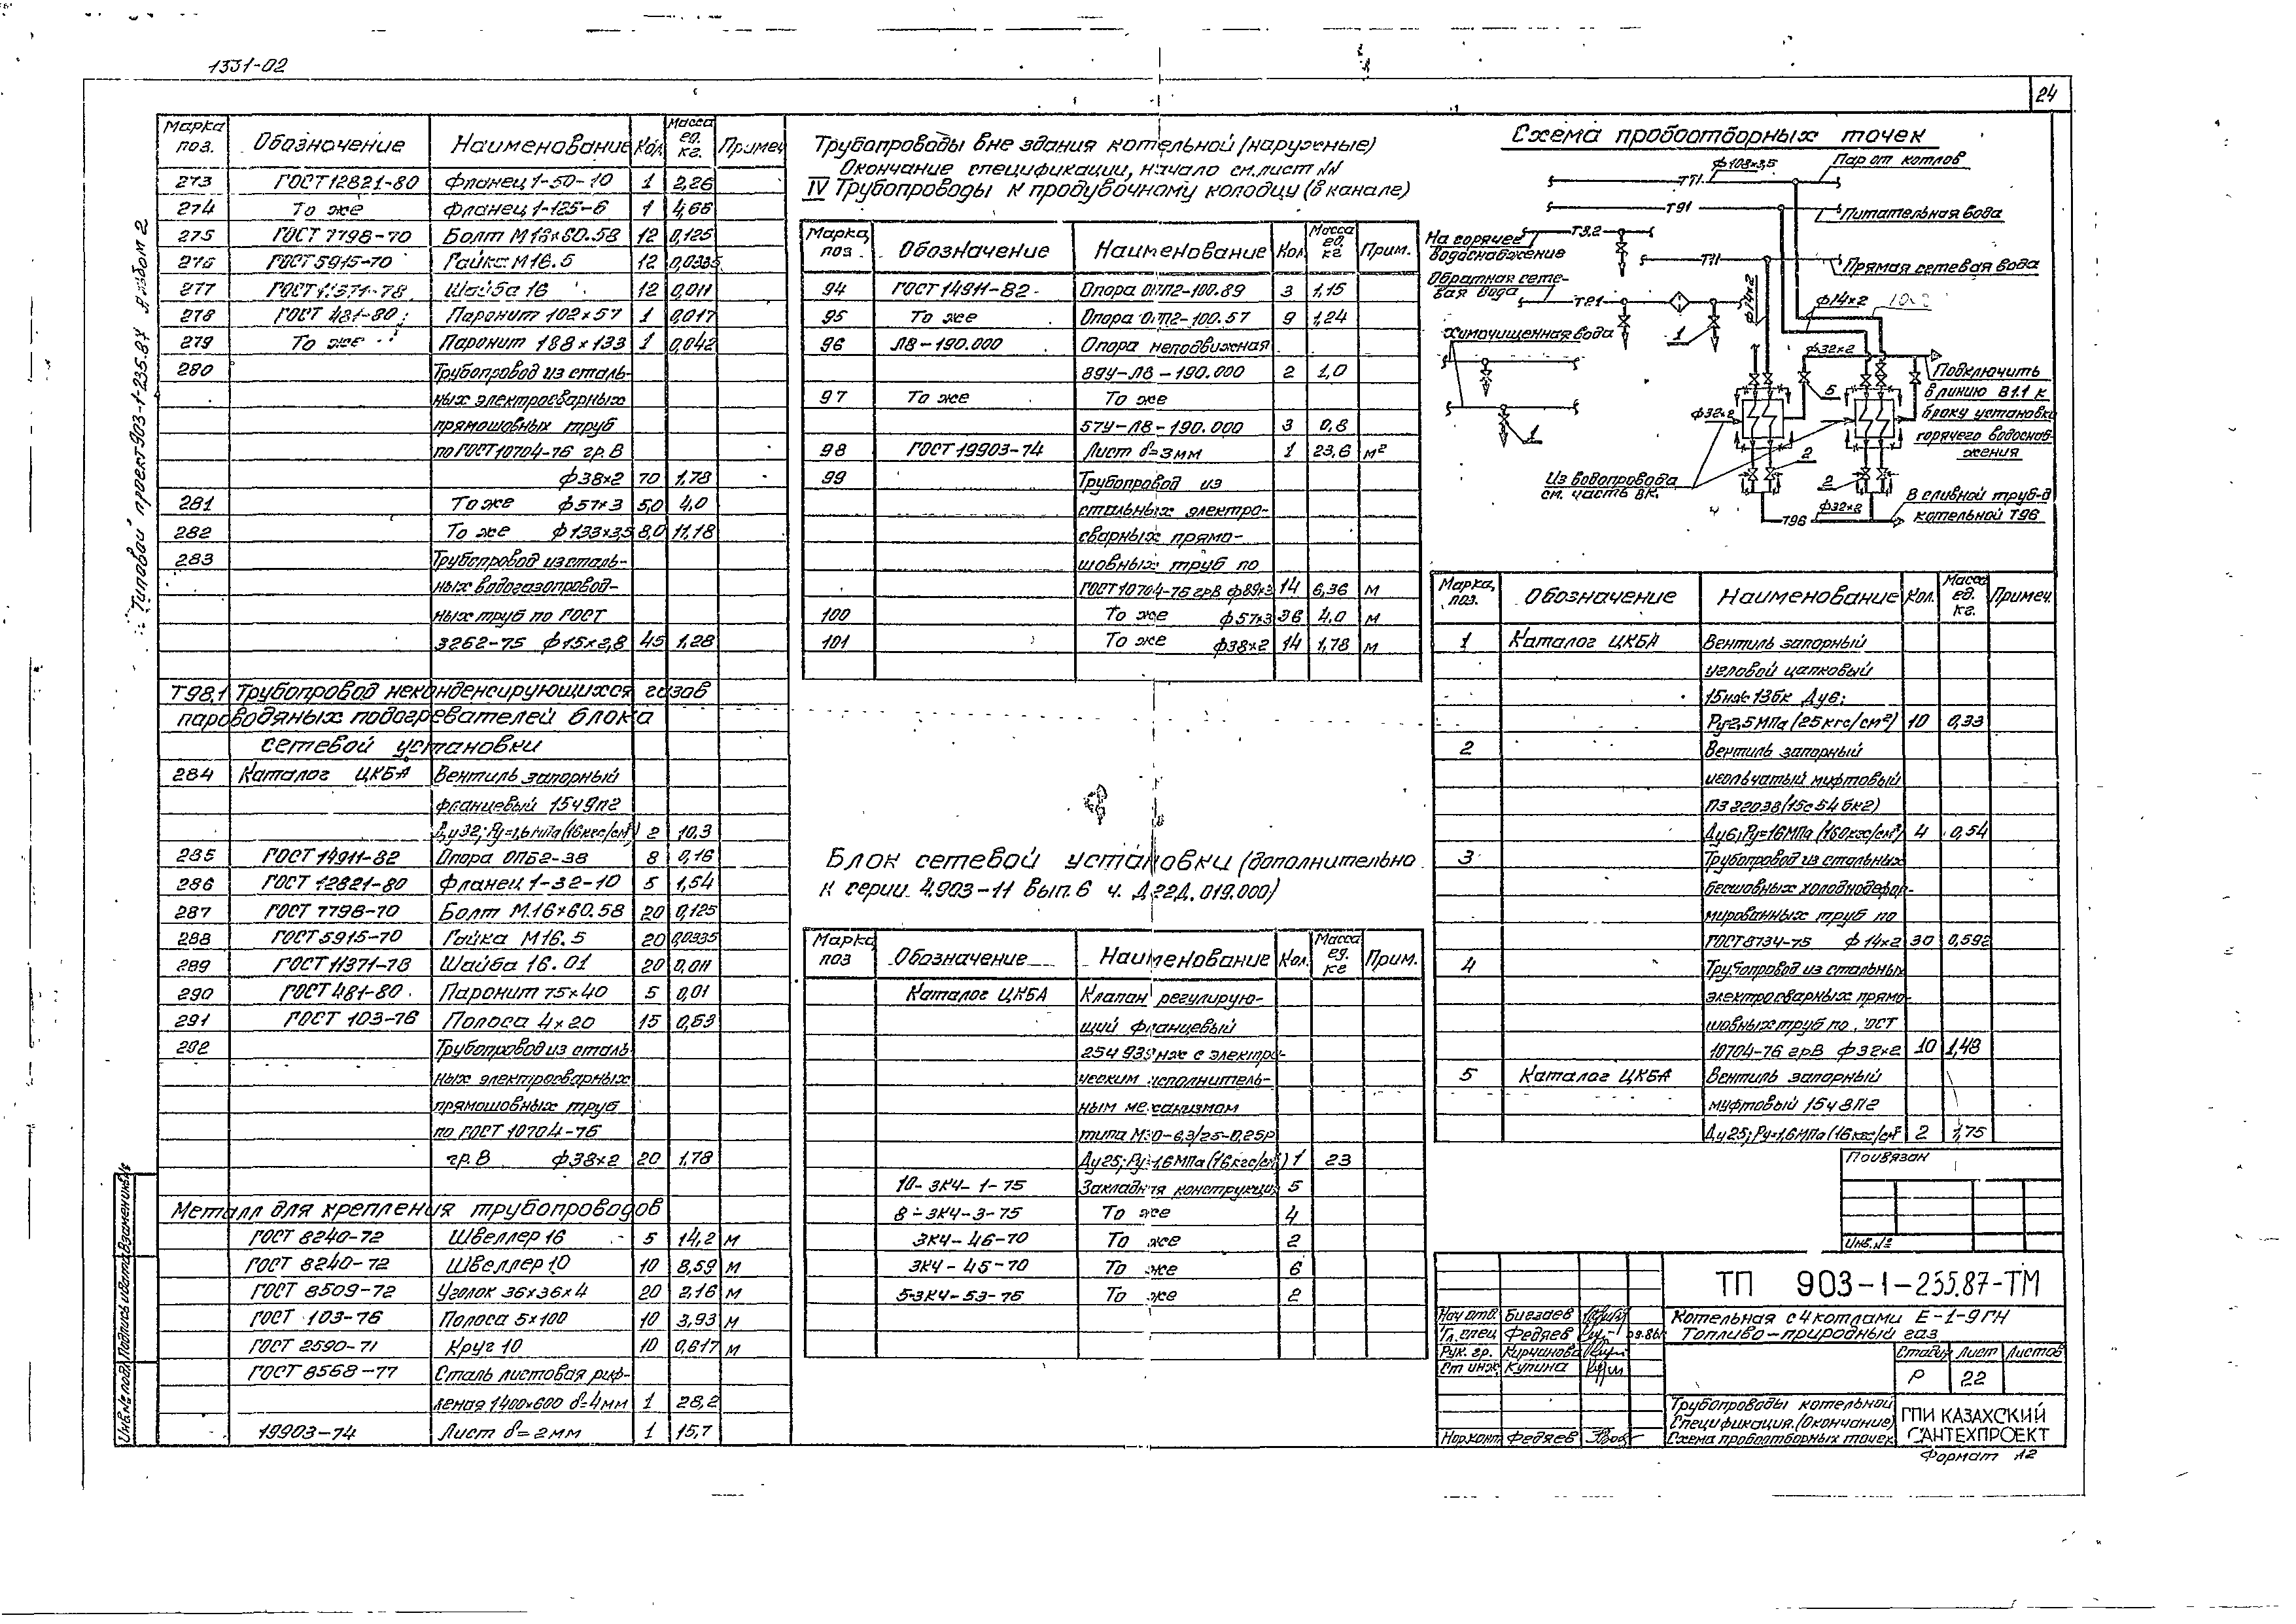 1331-02
24
Типовой проект 903-1-235.87 Альбом 2
Марка поз. Обозначение Наименование Кол. Масса ед. кг. Примеч
273 ГОСТ 12821-80 Фланец 1-50-10 1 2,26
274 То же Фланец 1-125-6 1 4,66
275 ГОСТ 7798-70 Болт М16х60.58 12 0,125
276 ГОСТ 5915-70 Гайка М16.5 12 0,0335
277 ГОСТ 11371-78 Шайба 16 12 0,011
278 ГОСТ 481-80 Паронит 102х57 1 0,017
279 То же Паронит 188х133 1 0,042
280 Трубопровод из сталь-
ных электросварных
прямошовных труб
по ГОСТ 10704-76 гр. В
ф38х2 70 1,78
281 То же ф57х3 5,0 4,0
282 То же ф133х3,5 8,0 11,18
283 Трубопровод из сталь-
ных водогазопровод-
ных труб по ГОСТ
3262-75 ф15х2,8 45 1,28
Т98.1 Трубопровод неконденсирующихся газов
пароводяных подогревателей блока
сетевой установки
284 Каталог ЦКБА Вентиль запорный
фланцевый 15ч9п2
Ду32; Ру=1,6 МПа (16кгс/см²) 2 10,3
285 ГОСТ 14911-82 Опора ОПБ2-38 8 0,16
286 ГОСТ 12821-80 Фланец 1-32-10 5 1,54
287 ГОСТ 7798-70 Болт М.16х60.58 20 0,125
288 ГОСТ 5915-70 Гайка М16.5 20 0,0335
289 ГОСТ 11371-78 Шайба 16.01 20 0,011
290 ГОСТ 481-80 Паронит 75х40 5 0,01
291 ГОСТ 103-76 Полоса 4х20 15 0,63
292 Трубопровод из сталь
ных электросварных
прямошовных труб
по ГОСТ 10704-76
гр. В ф38х2 20 1,78
Металл для крепления трубопроводов
ГОСТ 8240-72 Швеллер 16 5 14,2 м
ГОСТ 8240-72 Швеллер 10 10 8,59 м
ГОСТ 8509-72 Уголок 36х36х4 20 2,16 м
ГОСТ 103-76 Полоса 5х100 10 3,93 м
ГОСТ 2590-71 Круг 10 10 0,617 м
ГОСТ 8568-77 Сталь листовая риф-
леная 1400х600 δ=4мм 1 28,2
19903-74 Лист δ=2мм 1 15,7
Трубопроводы вне здания котельной (наружные)
Окончание спецификации, начало см. лист
IV Трубопроводы к продувочному колодцу (в канале)
Марка, поз. Обозначение Наименование Кол. Масса ед. кг Прим.
94 ГОСТ 14911-82 Опора ОПП2-100.89 3 1,15
95 То же Опора ОПП2-100.57 9 1,24
96 Л8-190.000 Опора неподвижная
89У-Л8-190.000 2 1,0
97 То же То же
57У-Л8-190.000 3 0,8
98 ГОСТ 19903-74 Лист δ=3мм 1 23,6 м²
99 Трубопровод из
стальных электро-
сварных прямо-
шовных труб по
ГОСТ 10704-76 гр В ф89х3 14 6,36 м
100 То же ф57х3 36 4,0 м
101 То же ф38х2 14 1,78 м
Блок сетевой установки (дополнительно
к серии 4.903-11 вып. 6 ч. Д22Д.019.000)
Марка, поз Обозначение Наименование Кол. Масса ед. кг Прим.
Каталог ЦКБА Клапан регулирую-
щий фланцевый
25ч 939нж с электри-
ческим исполнитель-
ным механизмом
типа МЭО-6,3/25-0,25Р
Ду25; Ру=1,6МПа (16кгс/см²) 1 23
10-ЗК4-1-75 Закладная конструкция 5
8-ЗК4-3-75 То же 4
ЗК4-46-70 То же 2
ЗК4-45-70 То же 6
5-ЗК4-53-76 То же 2
Схема пробоотборных точек
ф108х3,5 Пар от котлов
Т71
Т91 Питательная вода
На горячее водоснабжение
Т3.2
Т11 Прямая сетевая вода
Обратная сете-
вая вода
Т21
ф14х2
ф14х2
Химочищенная вода
1
ф32х2
Подключить
в линию В1.1 к
блоку установки
горячего водоснаб-
жения
5
ф32х2
2
2
1
Из водопровода
см. часть ВК.
В сливной труб-д
котельной Т96
Т96
ф32х2
Марка, поз. Обозначение Наименование Кол. Масса ед. кг. Примеч.
1 Каталог ЦКБА Вентиль запорный
угловой цапковый
15нж 13бк Ду6;
Ру2,5МПа (25кгс/см²) 10 0,33
2 Вентиль запорный
игольчатый муфтовый
ПЗ 22038 (15с54бк2)
Ду6; Ру=16МПа (160кгс/см²) 4 0,54
3 Трубопровод из стальных
бесшовных холоднодефор-
мированных труб по
ГОСТ 8734-75 ф14х2 30 0,592
4 Трубопровод из стальных
электросварных прямо-
шовных труб по ГОСТ
10704-76 гр В ф32х2 10 1,48
5 Каталог ЦКБА Вентиль запорный
муфтовый 15ч8п2
Ду25; Ру=1,6МПа (16кгс/см² 2 1,75
Привязан
Инв. №
ТП 903-1-235.87-ТМ
Котельная с 4 котлами Е-1-9ГН
Топливо-природный газ
Нач отд.
Гл. спец Федяев
Рук. гр. Кирчанова
Ст инж. Купина
Нор.конт Федяев
Стадия Лист Листов
Р 22
Трубопроводы котельной
Спецификация. (Окончание)
Схема пробоотборных точек
ГПИ КАЗАХСКИЙ
САНТЕХПРОЕКТ
Формат А2
Инв.№ подл. Подпись и дата Взамен инв.№